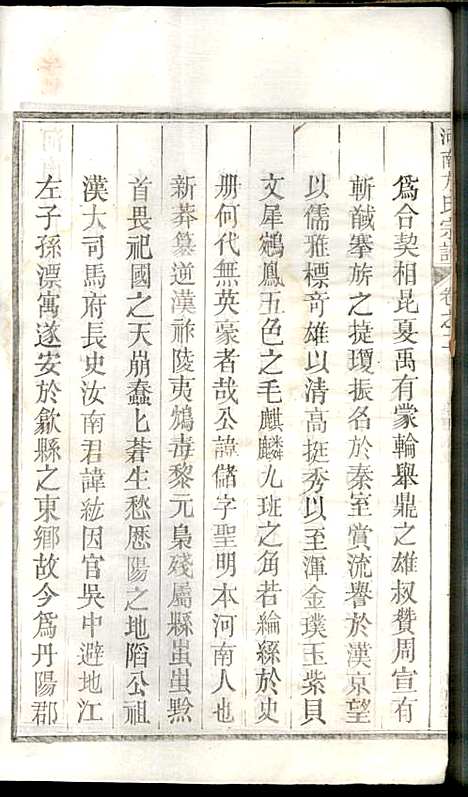 河南方氏宗譜
卷之一
為合契相昆夏禹有蒙輪舉鼎之雄叔贊周宣有
斬馘搴旂之捷瓊振名於秦室賞流譽於漢京望
以儒雅標竒雄以清高挺秀以至渾金璞玉紫貝
文犀鵷鳳五色之毛麒麟九班之角若綸綵於史
册何代無英豪者哉公諱儲字聖明本河南人也
新莽篡逆漢祚陵夷鴆毒黎元梟殘屬縣蚩蚩黔
首畏祀國之天崩蠢匕蒼生愁歷陽之地䧟公祖
漢大司馬府長史汝南君諱紘因官吳中避地江
左子孫漂寓遂安於歙縣之東鄉故今為丹陽郡